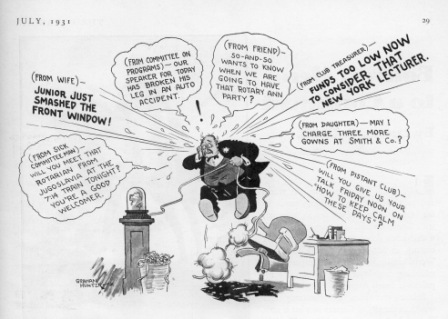 JULY, 1931
29
(FROM WIFE)—
JUNIOR JUST
SMASHED THE
FRONT WINDOW!
(FROM COMMITTEE ON
PROGRAMS) — OUR
SPEAKER FOR TODAY
HAS BROKEN HIS
LEG IN AN AUTO
ACCIDENT.
(FROM FRIEND)—
SO-AND-SO
WANTS TO KNOW
WHEN WE ARE
GOING TO HAVE
THAT ROTARY ANN
PARTY?
(FROM CLUB TREASURER)—
FUNDS TOO LOW NOW
TO CONSIDER THAT
NEW YORK LECTURER.
!
(FROM DAUGHTER) — MAY I
CHARGE THREE MORE
GOWNS AT SMITH & CO.?
(FROM SICK
COMMITTEEMAN)
WILL YOU MEET THAT
ROTARIAN FROM
JUGOSLAVIA AT THE
7:14 TRAIN TONIGHT?
YOU'RE A GOOD
WELCOMER.
(FROM DISTANT CLUB)—
WILL YOU GIVE US YOUR
TALK FRIDAY NOON ON
"HOW TO KEEP CALM
THESE DAYS"?
GRAHAM
HUNTER